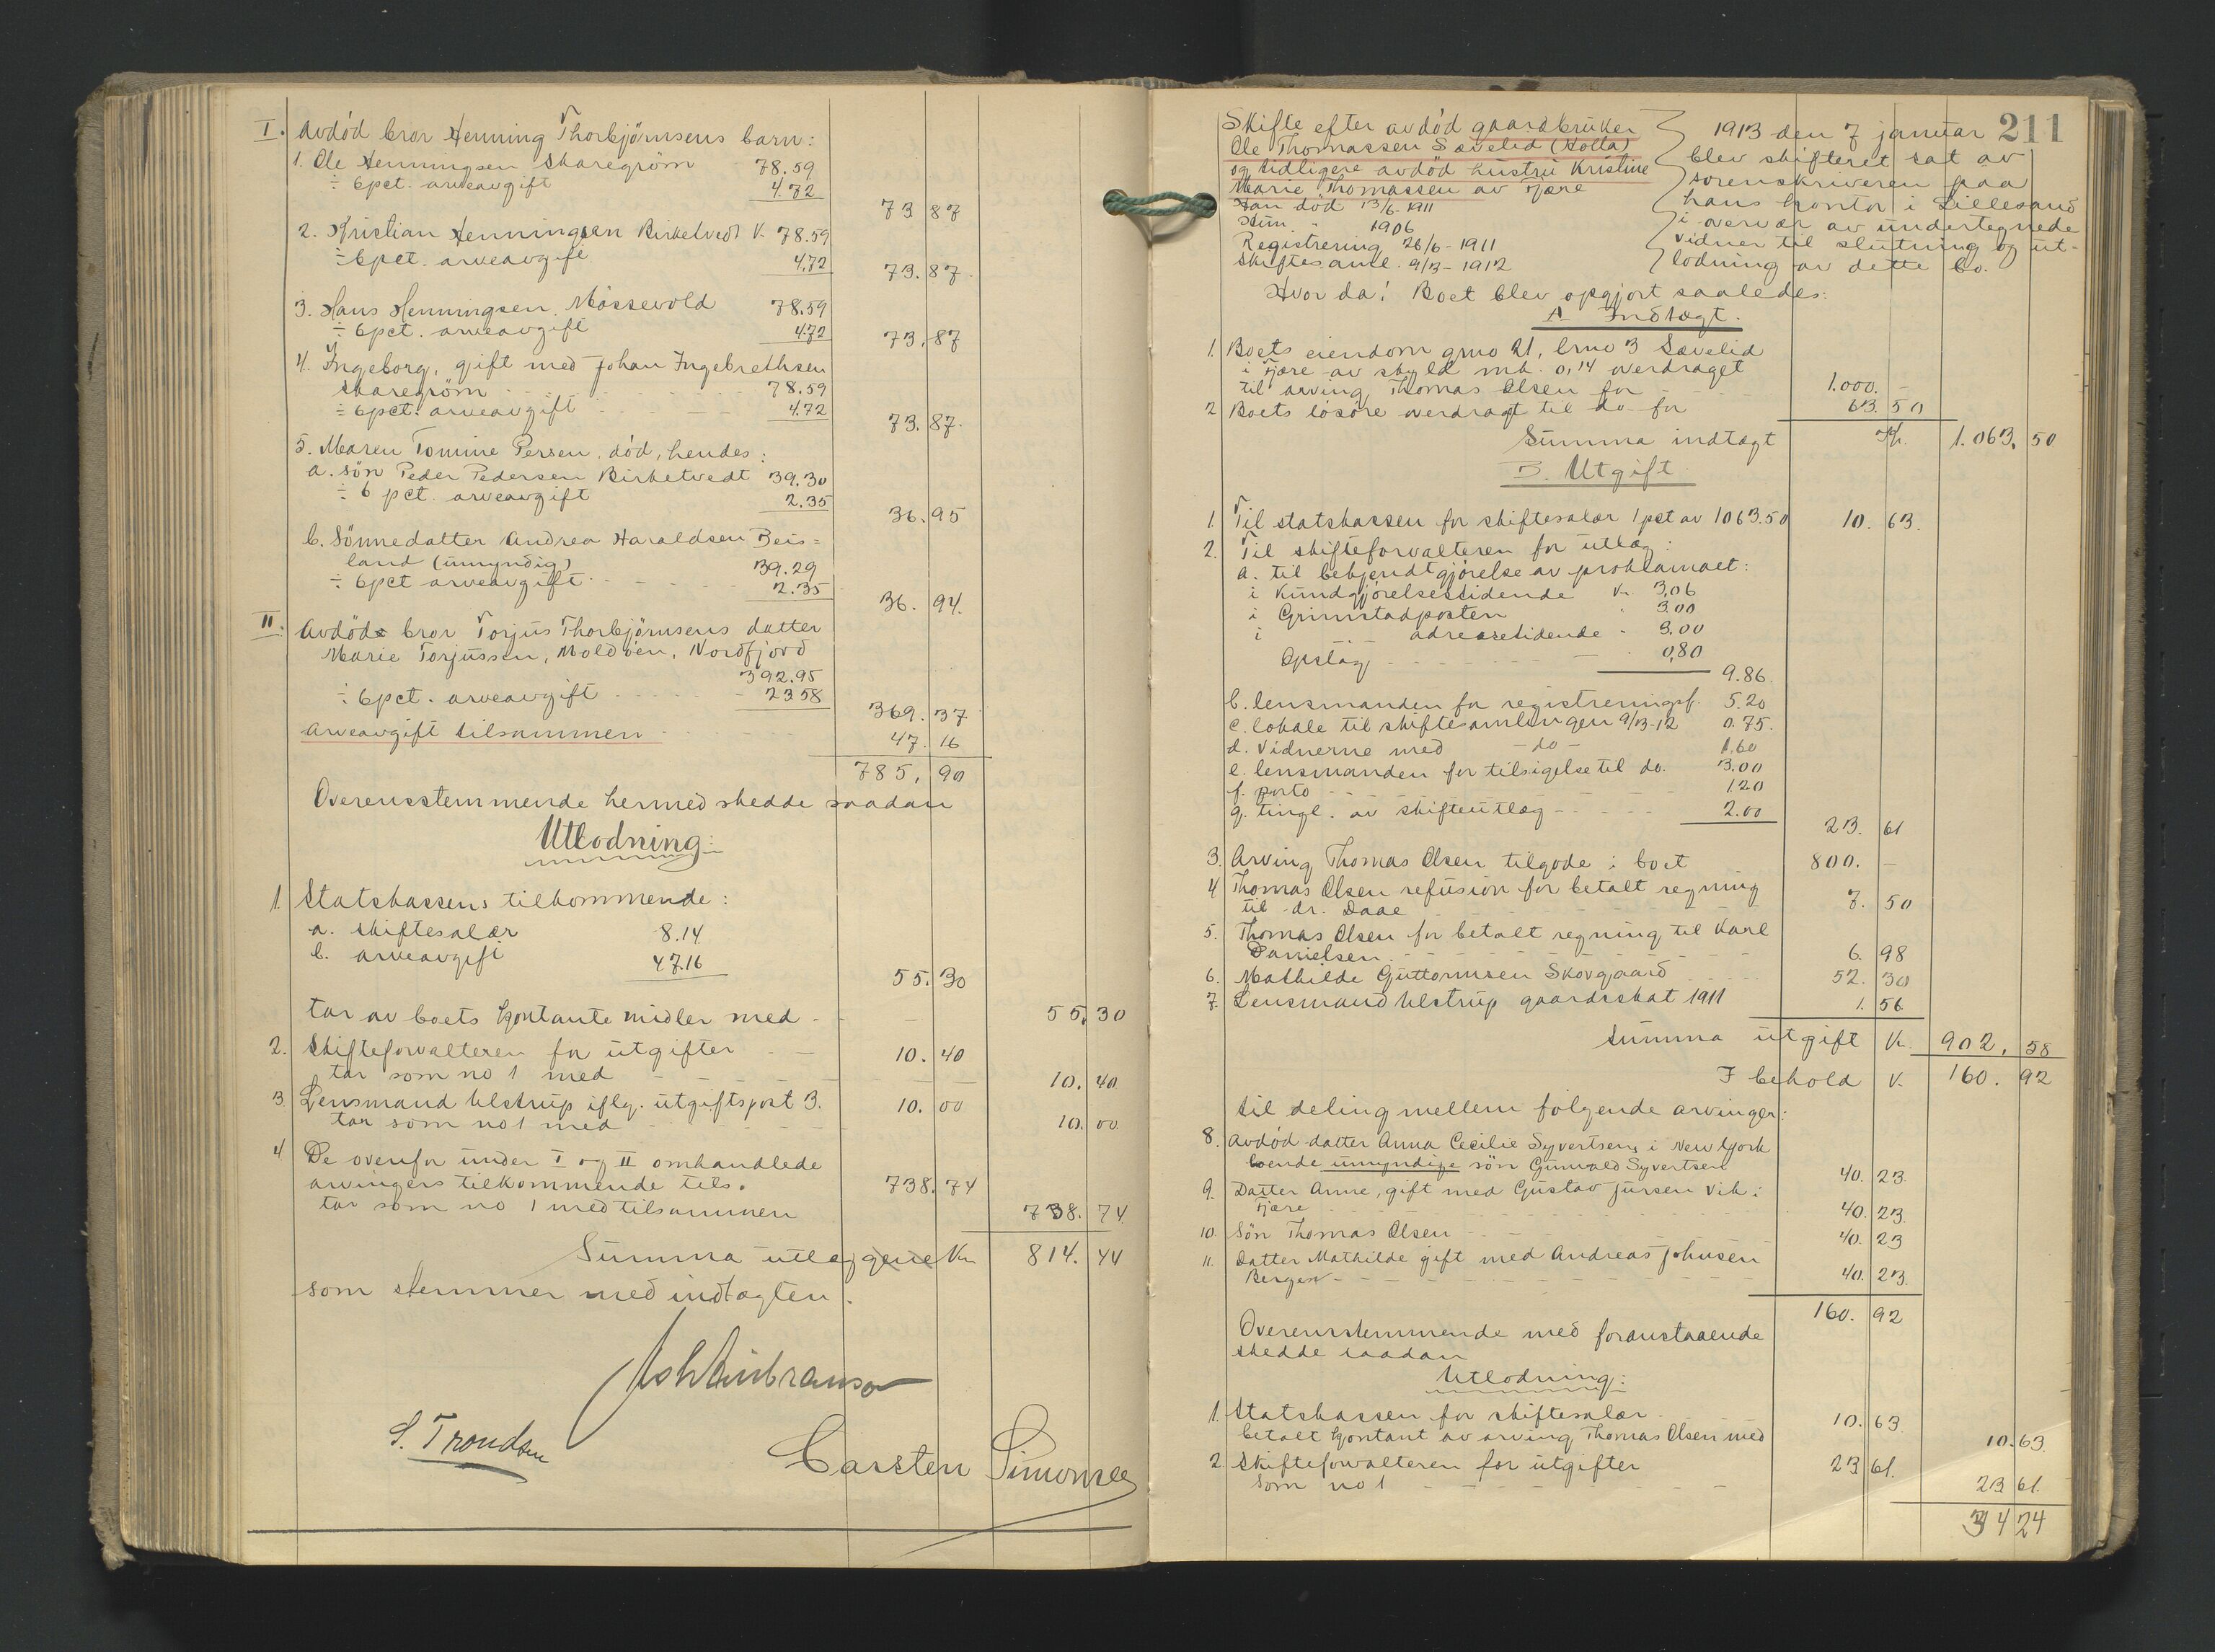 I. Avdöd bror Henning Thorbjörnsens barn:
1. Ole Henningsen Skaregröm 78.59
÷ 6pct. arveavgift 4.72
73 87
2. Kristian Henningsen Birketvedt K. 78.59
÷ 6pct. arveavgift 4.72
73. 87
3. Hans Henningsen Mössevold 78.59
÷ 6pct. arveavgift 4.72
73. 87
4. Ingeborg, gift med Johan Ingebrethsen
Skaregröm 78.59
÷ 6pct. arveavgift 4.72
73. 87.
5. Maren Tomine Persen, död, hendes:
a. sön Peder Pedersen Birketvedt 39.30
÷ 6 pct. arveavgift 2.35
36. 95
b. Sönnedatter Andrea Haraldsen Beis=
land (umyndig) 39.29
÷ 6pct arveavgift 2.35
36. 94.
II. Avdöd bror Torjus Thorbjörnsens datter
Marie Torjussen, Moldöen, Nordfjord
392.95
÷ 6pct. arveavgift 23 58
369. 37
Arveavgift tilsammen 47. 16
785, 90
Overensstemmende hermed skedde saadan
Utlodning:
1. Statskassens tilkommende:
a. skiftesalær 8.14
b. arveavgift 47.16
55. 30
tar av boets kontante midler med 55, 30
2. Skifteforvalteren for utgifter 10. 40
tar som no 1 med 10. 40
3. Lensmand Ulstrup iflg. utgiftspost 3. 10. 00
tar som no 1 med 10. 00.
4 De ovenfor under I og II omhandlede
arvingers tilkommende tils. 738. 74
tar som no 1 med tilsammen 738. 74
Summa utlæggene Kr. 814. 44
som stemmer med indtægten.
S. Trondsen
Carsten Simonsen
211
Skifte efter avdöd gaardbruker
Ole Thomassen Sævelid (Holta)
og tidligere avdöd hustru Kristine
Marie Thomassen av Fjære
Han död 13/6-1911
Hun " 1906
Registrering 26/6-1911
Skiftesaml. 9/3-1912
1913 den 7 januar
blev skifteret sat av
sorenskriveren paa
hans kontor i Lillesand
i overvær av undertegnede
vidner til slutning og ut-
lodning av dette bo.
Hvor da: Boet blev opgjort saaledes:
A Indtægt.
1. Boets eiendom gno 21, bno 3 Sævelid
i Fjære av skyld mk. 0,14 overdraget
til arving Thomas Olsen for 1.000. -
2 Boets lösöre overdragt til do for 63. 50
Summa indtægt Kr. 1.063. 50
B. Utgift.
1. Til statskassen for skiftesalær 1 pct av 1063.50 10. 63.
2. Til skifteforvalteren for utlæg:
a. til bekjendtgjörelse av proklamaet:
i Kundgjörelsestidende Kr. 3,06
i Grimstadposten " 3.00
i adressetidende " 3.00
Opslag 0,80
9.86.
b. lensmanden for registreringsf. 5.20
c. lokale til skiftesamlingen 9/3-12 0.75.
d. Vidnerne med - do - 1.60
e. lensmanden for tilsigelse til do. 3.00
f. porto 1.20
g. tingl. av skifteutlæg 2.00
23. 61
3. Arving Thomas Olsen tilgode i boet 800. -
4 Thomas Olsen refusion for betalt regning
til dr. Daae 7. 50
5. Thomas Olsen for betalt regning til Karl
Danielsen 6. 98
6. Mathilde Guttormsen Skovgaard 52. 30
7. Lensmand Ulstrup gaardsskat 1911 1. 56
Summa utgift Kr. 902. 58
I behold K. 160. 92
til deling mellem fölgende arvinger:
8. Avdöd datter Anna Cecilie Syvertsens i New York
boende umyndige sön Gunvald Syvertsen 40. 23.
9. Datter Anne, gift med Gustav Jursen Vik i
Fjære 40. 23.
10. Sön Thomas Olsen 40. 23
11. Datter Mathilde gift med Andreas Johnsen
Bergen 40. 23.
160. 92
Overensstemmende med foranstaaende
skedde saadan
Utlodning:
1. Statskassen for skiftesalær 10. 63
betalt kontant av arving Thomas Olsen med 10. 63.
2 Skifteforvalteren for utgifter 23 61.
som no 1 23 61.
34 24